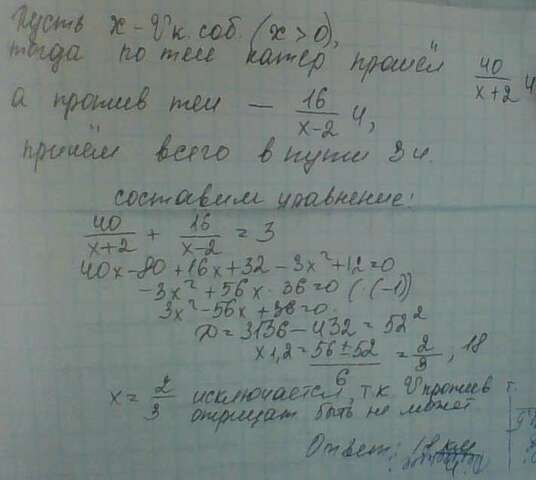 Пусть x - Vк. соб. (x > 0),
тогда по теч катер прошёл 40/(x+2) ч
а против теч — 16/(x-2) ч,
причём всего в пути 3ч.
составим уравнение:
40/(x+2) + 16/(x-2) = 3
40x-80+16x+32-3x²+12=0
-3x²+56x-36=0 (·(-1))
3x²-56x+36=0.
D=3136-432=52²
x1,2=(56±52)/6 = 2/3, 18
x = 2/3 исключается, т.к V против т.
отрицат. быть не может
Ответ: 18